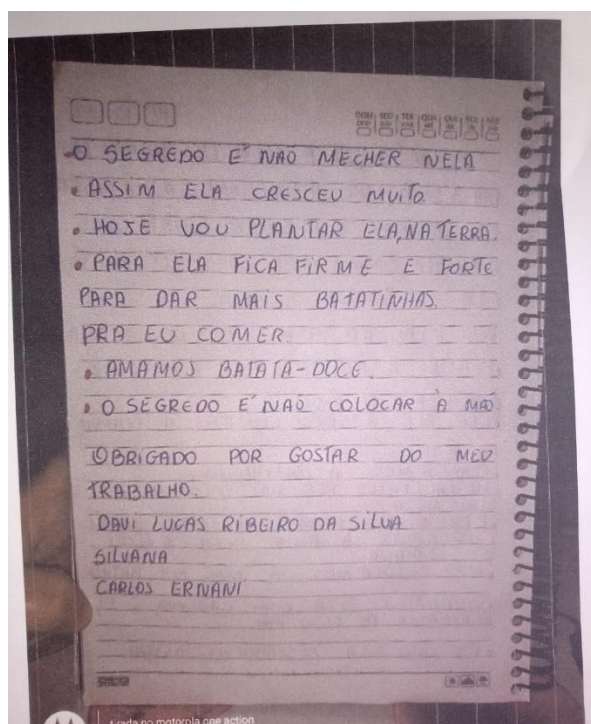 DOM SEG TER QUA QUI SEX SÁB
•O SEGREDO É NAO MECHER NELA
• ASSIM ELA CRESCEU MUITO.
• HOJE VOU PLANTAR ELA, NA TERRA.
• PARA ELA FICA FIRME E FORTE
PARA DAR MAIS BATATINHAS.
PRA EU COMER.
• AMAMOS BATATA-DOCE.
• O SEGREDO É NAO COLOCAR À MAO
OBRIGADO POR GOSTAR DO MEU
TRABALHO.
DAVI LUCAS RIBEIRO DA SILVA
SILVANA
CARLOS ERNANI
tirada no motorola one action